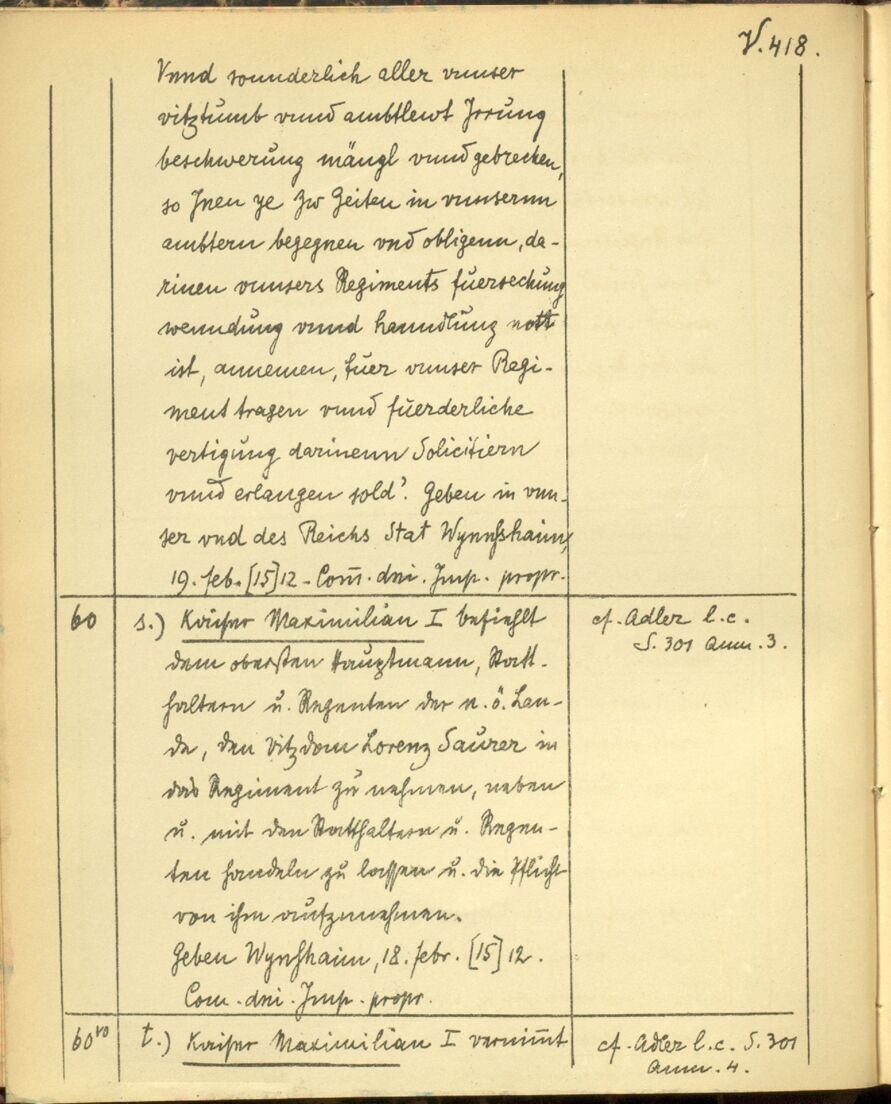 V. 418.
Vnnd sounderlich aller vnnser
vitztumb vnnd ambtlewt Jrrung
beschwerung mängl vnnd gebrechen,
so Jnen ye zw Zeiten in vnnsernn
ambtern begegnen vnd obligenn, da-
rinen vnnsers Regiments fuersechung
wenndung vnnd hanndlung nott
ist, annemen, fuer vnnser Regi-
ment tragen vnnd fuerderliche
vertigung darinenn Solicitiern
vnnd erlangen sold'. Geben in vnn-
ser vnd des Reichs Stat Wynnshaim,
19. feb. [15]12 - Com̅. dni. Jmp. propr.
60 s.) Kaiser Maximilian I befiehlt
cf. Adler l. c.
S. 301 Anm. 3.
dem obersten Hauptmann, Statt-
haltern u. Regenten der n. ö. Lan-
de, den Vitzdom Lorenz Saurer in
das Regiment zu nehmen, neben
u. mit den Statthaltern u. Regen-
ten handeln zu lassen u. die Pflicht
von ihm aufzunehmen.
Geben Wynshaim, 18. febr. [15]12.
Com. dni. Jmp. propr.
60vo t.) Kaiser Maximilian I vernim̅t
cf. Adler l. c. S. 301
Anm. 4.